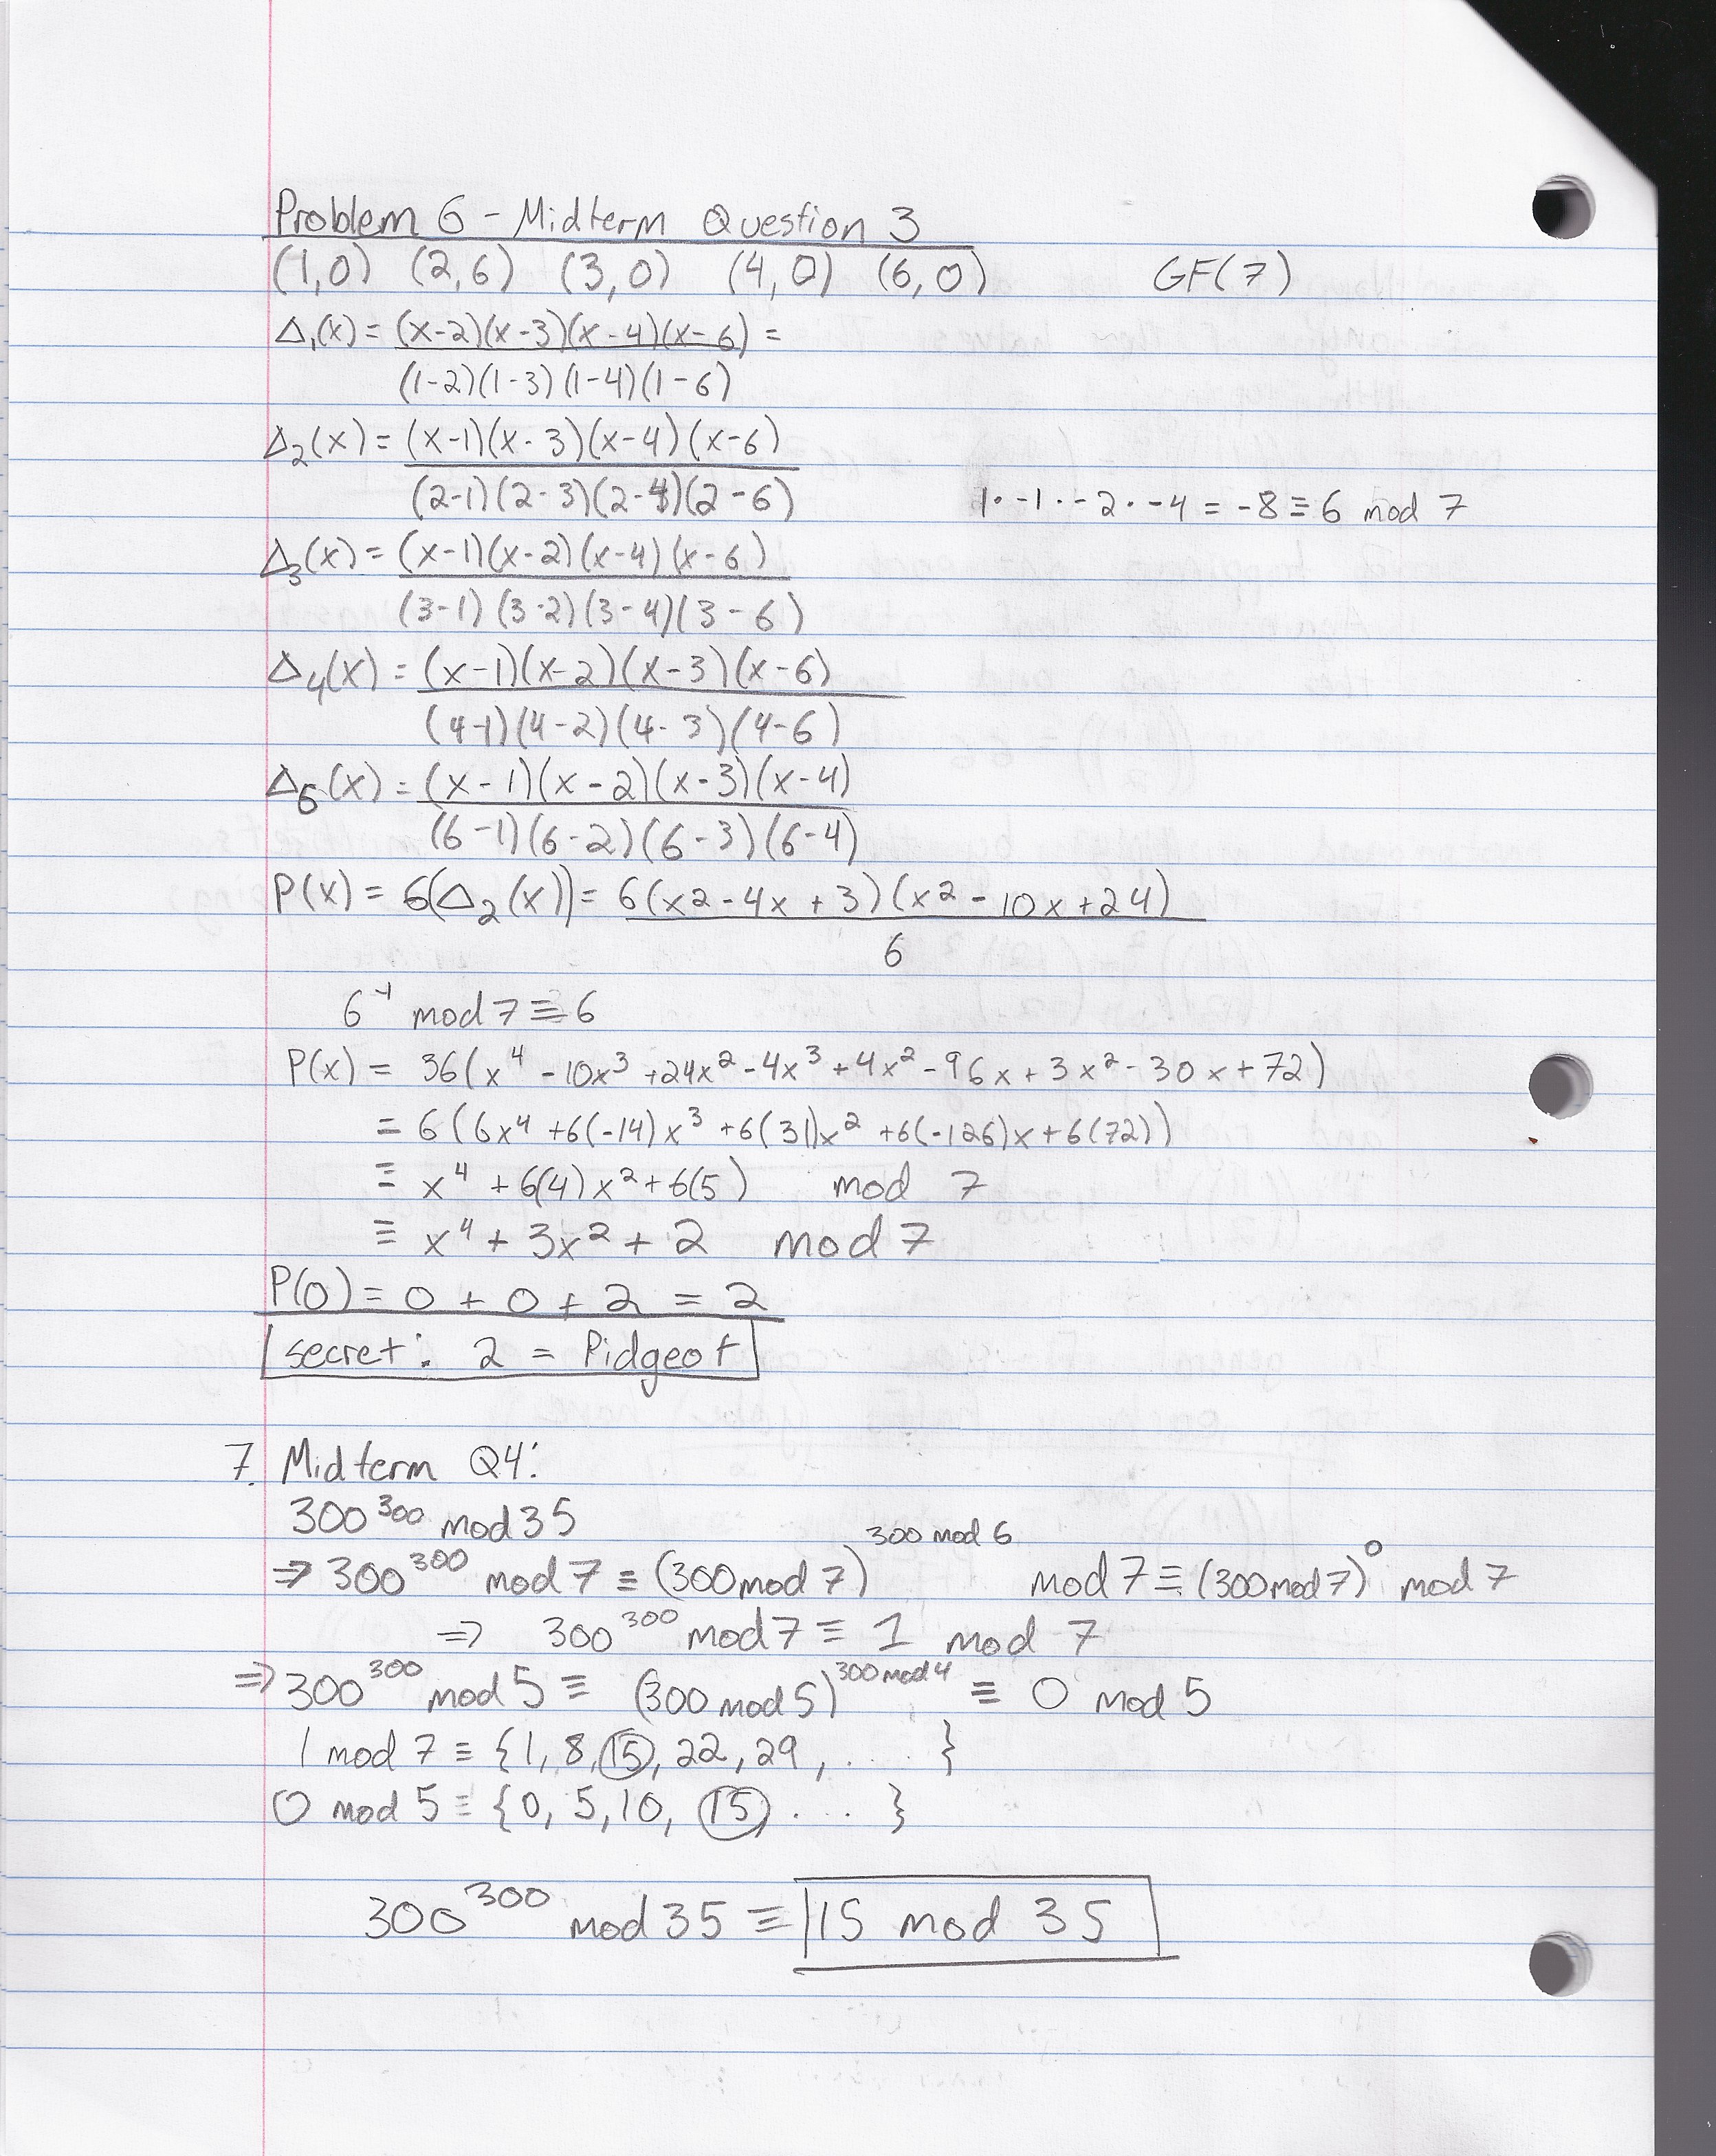 Problem 6 - Midterm Question 3
(1,0) (2,6) (3,0) (4,0) (6,0) GF(7)
Δ₁(x) = (x-2)(x-3)(x-4)(x-6) =
(1-2)(1-3)(1-4)(1-6)
Δ₂(x) = (x-1)(x-3)(x-4)(x-6)
(2-1)(2-3)(2-4)(2-6) 1·-1·-2·-4 = -8 ≡ 6 mod 7
Δ₃(x) = (x-1)(x-2)(x-4)(x-6)
(3-1)(3-2)(3-4)(3-6)
Δ₄(x) = (x-1)(x-2)(x-3)(x-6)
(4-1)(4-2)(4-3)(4-6)
Δ₆(x) = (x-1)(x-2)(x-3)(x-4)
(6-1)(6-2)(6-3)(6-4)
P(x) = 6(Δ₂(x)) = 6(x2-4x+3)(x2-10x+24)
6
6⁻¹ mod 7 ≡ 6
P(x) = 36(x⁴ - 10x³ + 24x² - 4x³ + 4x² - 96x + 3x² - 30x + 72)
= 6(6x⁴ + 6(-14)x³ + 6(31)x² + 6(-126)x + 6(72))
≡ x⁴ + 6(4)x² + 6(5) mod 7
≡ x⁴ + 3x² + 2 mod 7
P(0) = 0 + 0 + 2 = 2
secret: 2 = Pidgeot
7. Midterm Q4:
300³⁰⁰ mod 35
⇒ 300³⁰⁰ mod 7 ≡ (300 mod 7)^300 mod 6 mod 7 ≡ (300 mod 7)⁰ mod 7
⇒ 300³⁰⁰ mod 7 ≡ 1 mod 7
⇒ 300³⁰⁰ mod 5 ≡ (300 mod 5)^300 mod 4 ≡ 0 mod 5
1 mod 7 ≡ {1, 8, 15, 22, 29, .... }
0 mod 5 ≡ {0, 5, 10, 15 .... }
300³⁰⁰ mod 35 ≡ 15 mod 35